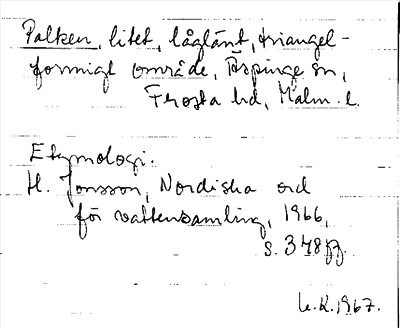 Palken, litet, låglänt, triangel-
formigt område, Äspinge sn,
Frosta hd, Malm. l.
Etymologi:
H. Jonsson, Nordiska ord
för vattensamling, 1966,
s. 348 ff.
U.K. 1967.